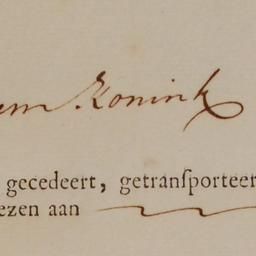 em. Konink
gecedeert, getransporteer
ezen aan